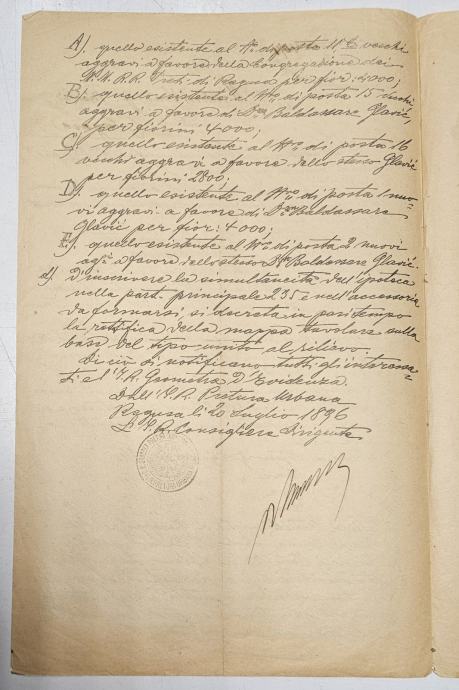 A). quello esistente al No. di posta 11 vecchi
aggravi a favore della Congregazione dei
di Ragusa per fior: 4000;
B). quello esistente al No. di posta 15 vecchi
aggravi a favore di Dn. Baldassare Glavić
per fiorini 4000;
C). quello esistente al No. di posta 16
vecchi aggravi a favore dello stesso Glavić
per fiorini 2800;
D). quello esistente al No. di posta 1 nuo-
vi aggravi a favore di Dn. Baldassare
Glavić per fior: 4000;
E). quello esistente al No. di posta 2 nuovi
agi. a favore dello stesso Dn. Baldassare Glavić.
d) D'inscrivere la simultaneità dell'ipoteca
nella part. principale 235 e nell'accessoria
da formarsi, si decreta in pari tempo
la rettifica della mappa tavolare sulla
base del tipo unito al rilievo.
Di ciò si notificano tutti gli interessa-
ti e l'I. R. Geometra d'Evidenza.
Dall'I. R. Pretura Urbana
Ragusa li 20 Luglio 1896
L'I. R. Consigliere Dirigente